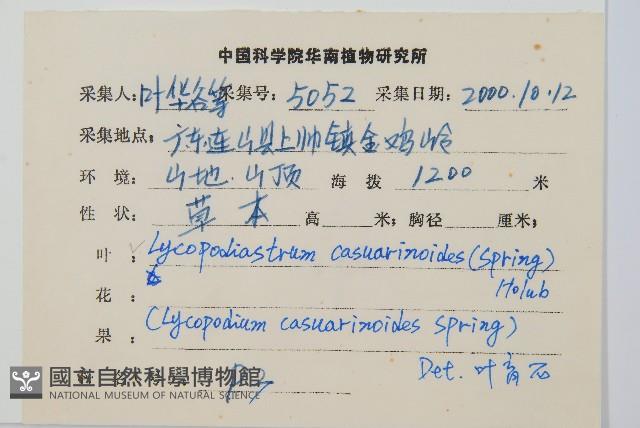 中国科学院华南植物研究所
采集人:叶华谷等采集号:5052采集日期:2000.10.12
采集地点:广东连山县上帅镇金鸡岭
环 境:山地.山顶 海 拔 1200 米
性 状:草本 高 米;胸径 厘米;
叶:Lycopodiastrum casuarinoides (Spring)
花: Holub
果:(Lycopodium casuarinoides Spring)
Det. 叶育石
國立自然科學博物館
NATIONAL MUSEUM OF NATURAL SCIENCE